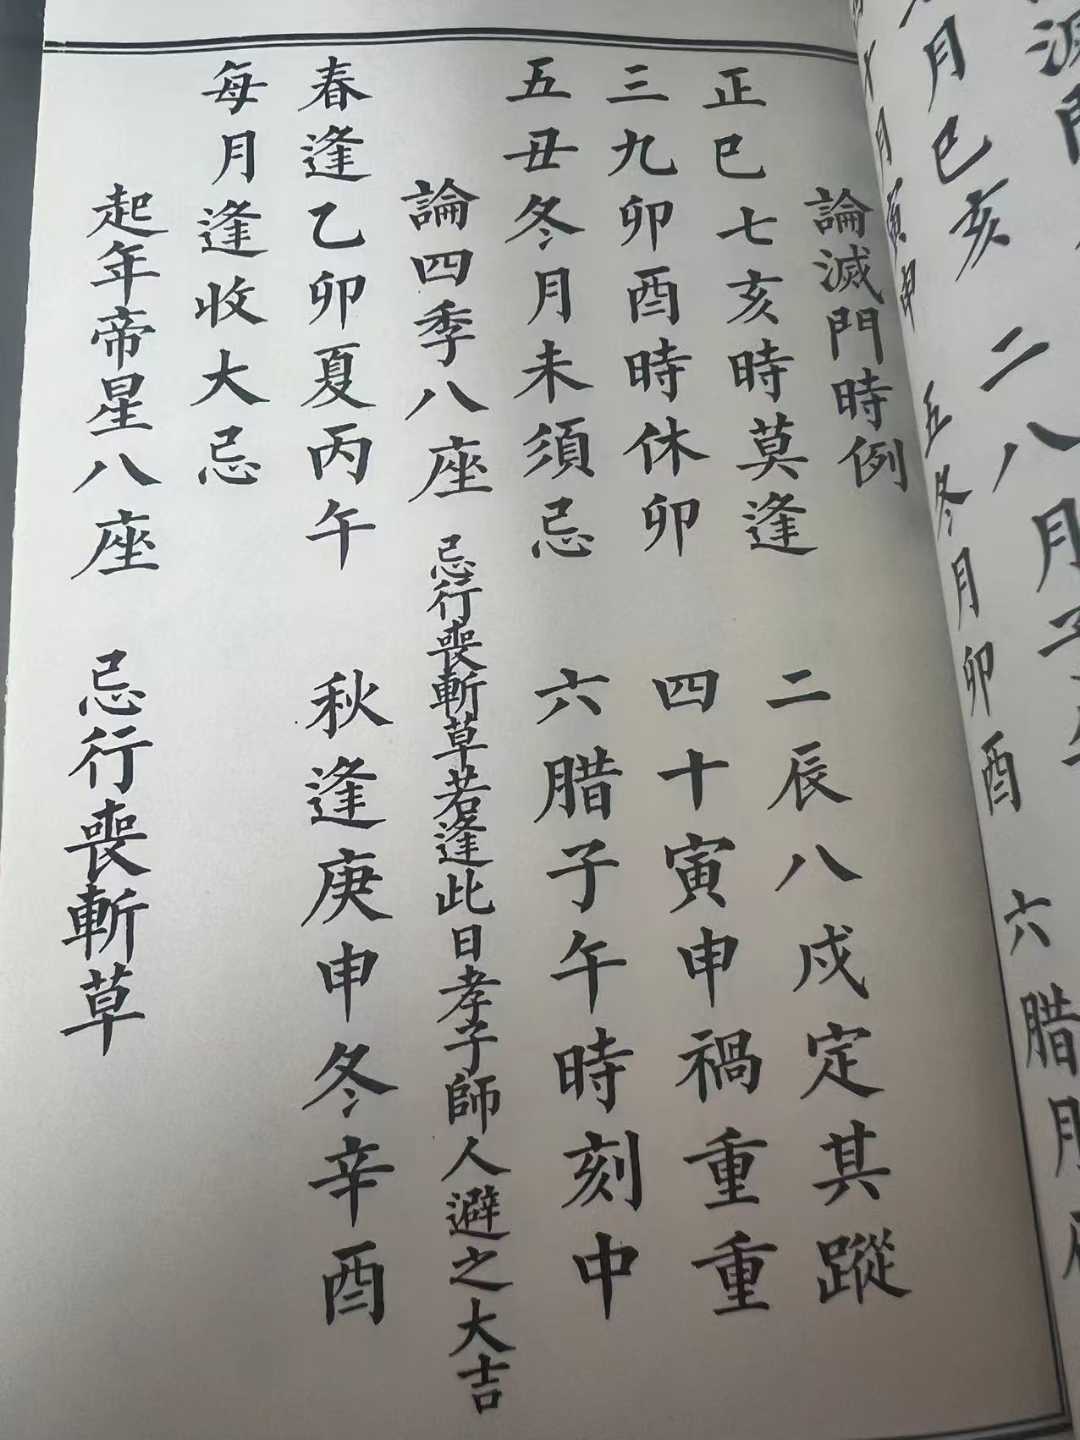 二八月子
五冬月卯酉
六腊月
月巳亥
論滅門時例
正巳七亥時莫逢　二辰八戌定其蹤
三九卯酉時休卯　四十寅申禍重重
五丑冬月未須忌　六腊子午時刻中
論四季八座　忌行喪斬草若逢此日孝子師人避之大吉
春逢乙卯夏丙午　秋逢庚申冬辛酉
每月逢收大忌
起年帝星八座　忌行喪斬草